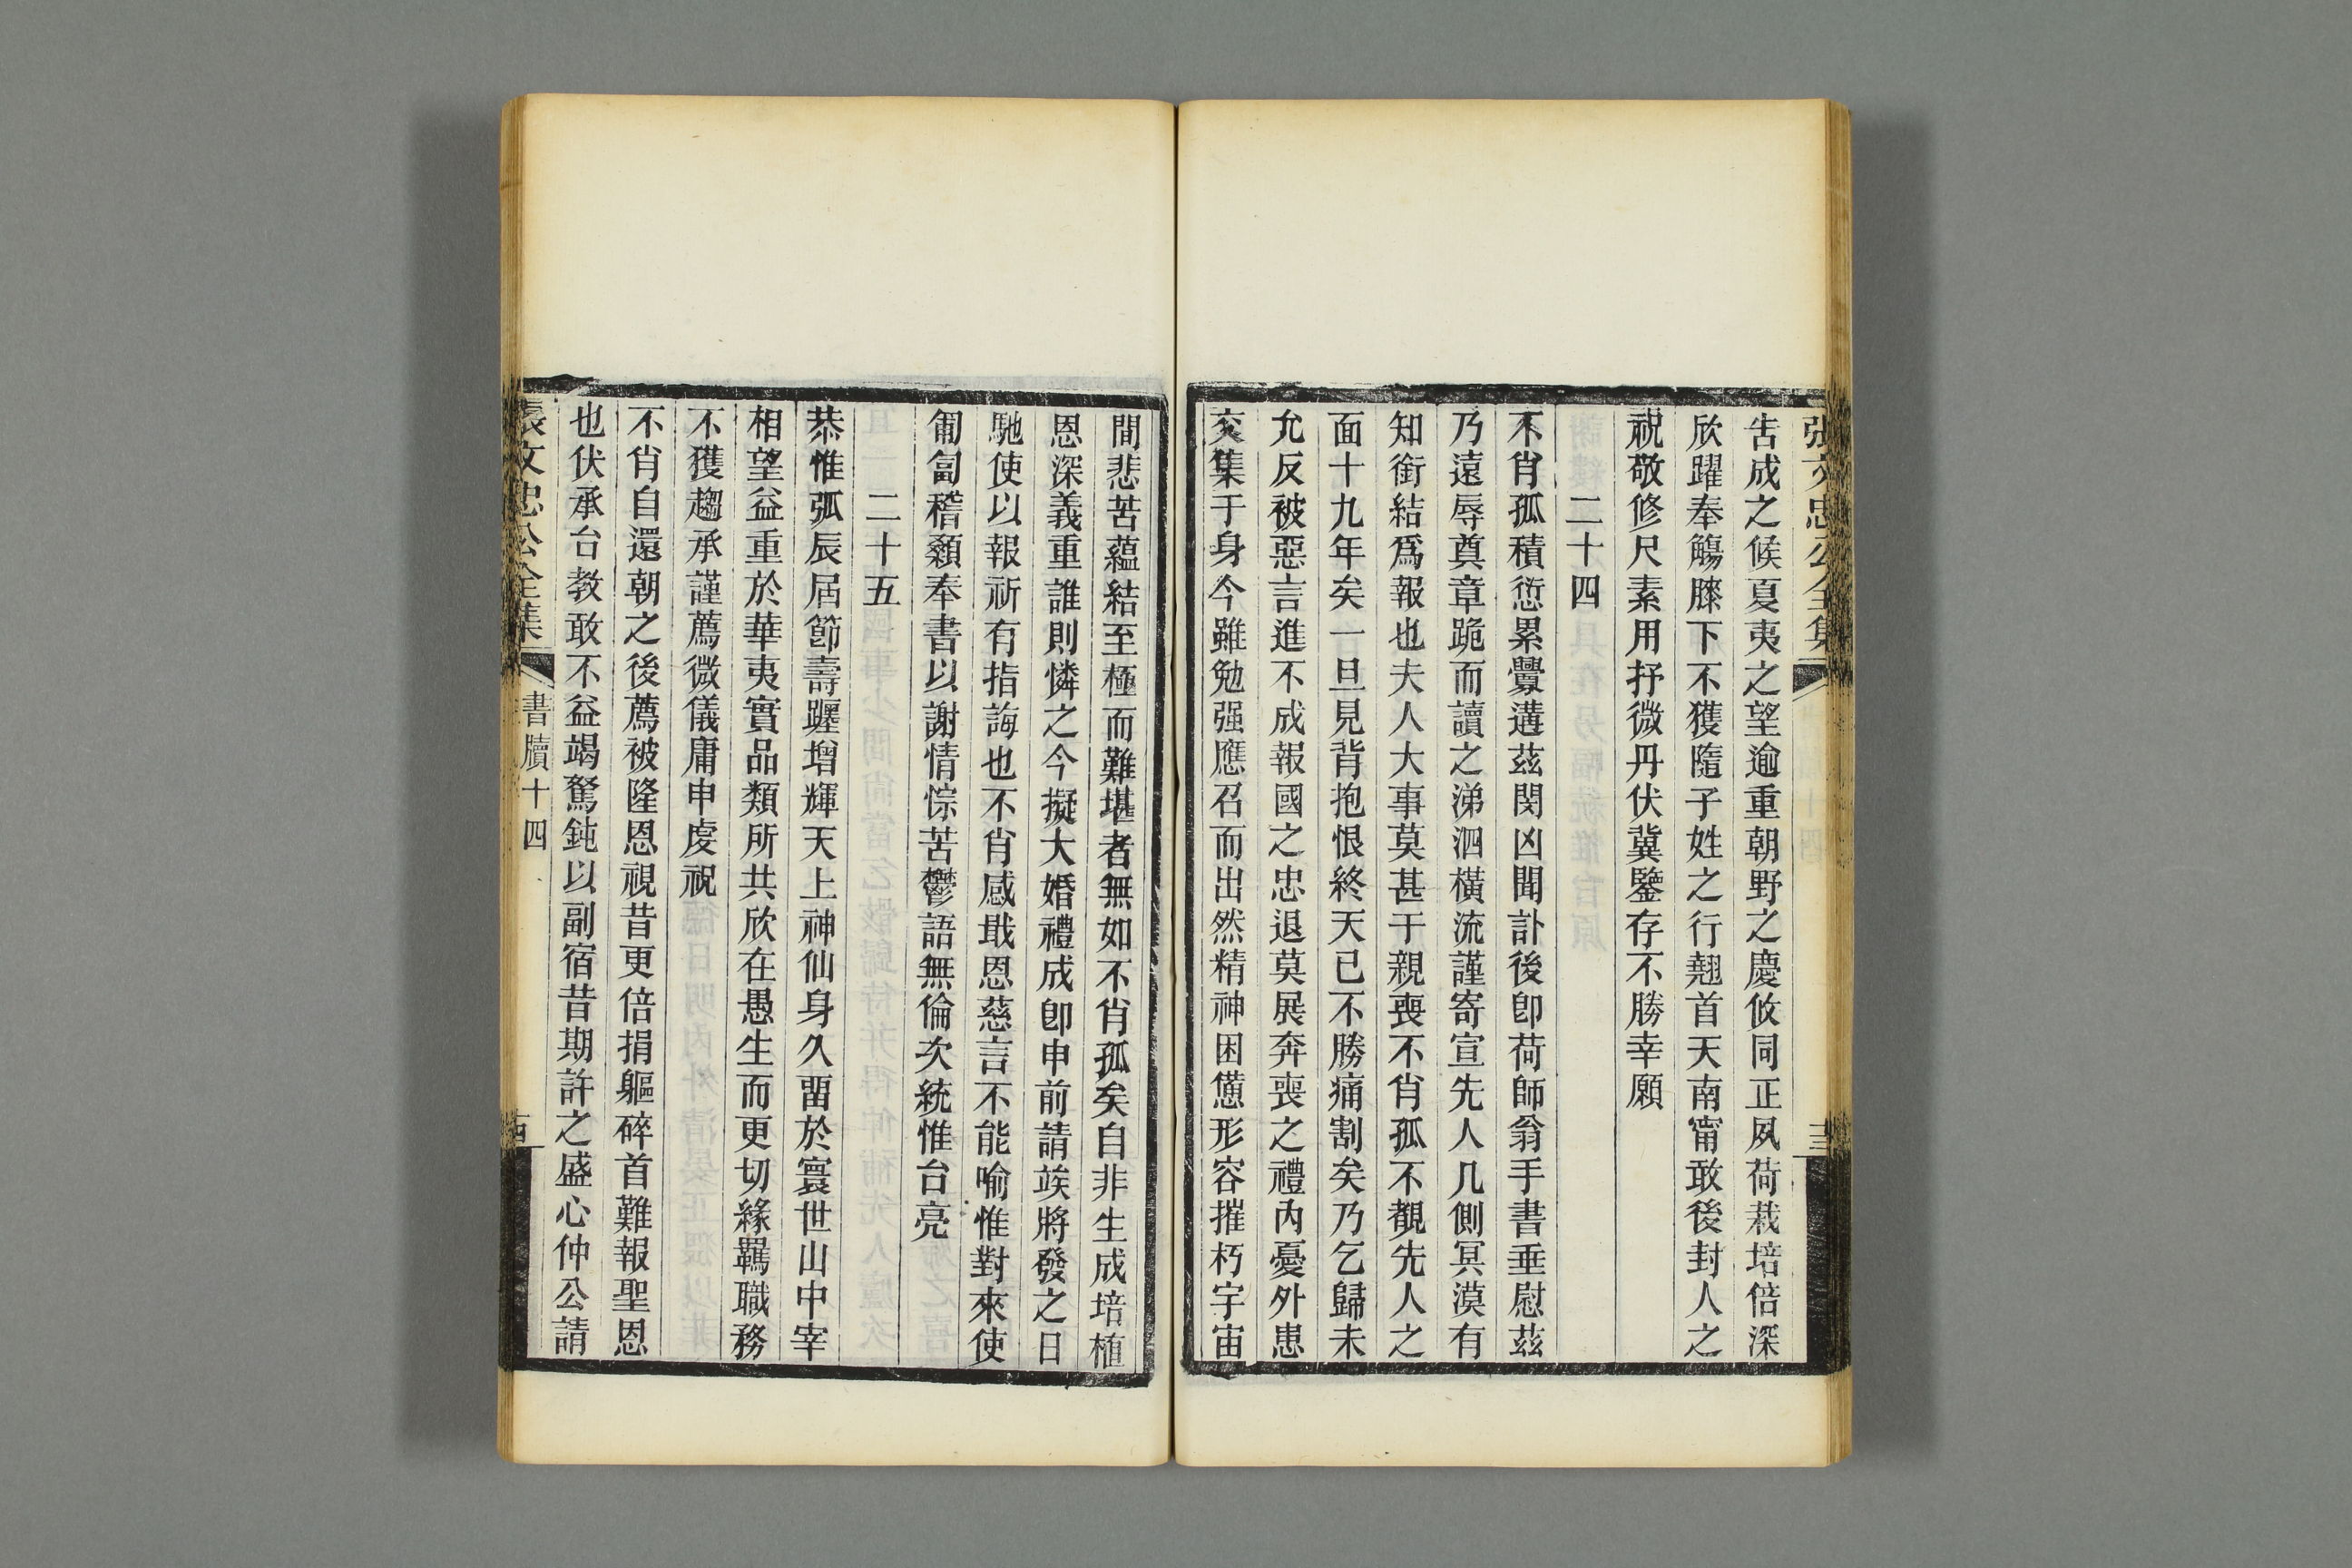 張文忠公全集
十三
告成之候夏夷之望逾重朝野之慶攸同正夙荷栽培倍深
欣躍奉觴膝下不獲隨子姓之行翹首天南甯敢後封人之
祝敬修尺素用抒微丹伏冀鑒存不勝幸願
二十四
不肖孤積愆累釁遘茲閔凶聞訃後卽荷師翁手書垂慰茲
乃遠辱奠章跪而讀之涕泗橫流謹寄宣先人几側冥漠有
知銜結爲報也夫人大事莫甚于親喪不肖孤不覩先人之
面十九年矣一旦見背抱恨終天已不勝痛割矣乃乞歸未
允反被惡言進不成報國之忠退莫展奔喪之禮內憂外患
交集于身今雖勉强應召而出然精神困憊形容摧朽宇宙
間悲苦蘊結至極而難堪者無如不肖孤矣自非生成培植
恩深義重誰則憐之今擬大婚禮成卽申前請竢將發之日
馳使以報祈有指誨也不肖感戢恩慈言不能喻惟對來使
匍匐稽顙奉書以謝情悰苦鬱語無倫次統惟台亮
二十五
恭惟弧辰屆節壽躔增輝天上神仙身久畱於寰世山中宰
相望益重於華夷實品類所共欣在愚生而更切緣羈職務
不獲趨承謹薦微儀庸申虔祝
不肖自還朝之後薦被隆恩視昔更倍捐軀碎首難報聖恩
也伏承台教敢不益竭駑鈍以副宿昔期許之盛心仲公請
張文忠公全集
書牘十四
十四